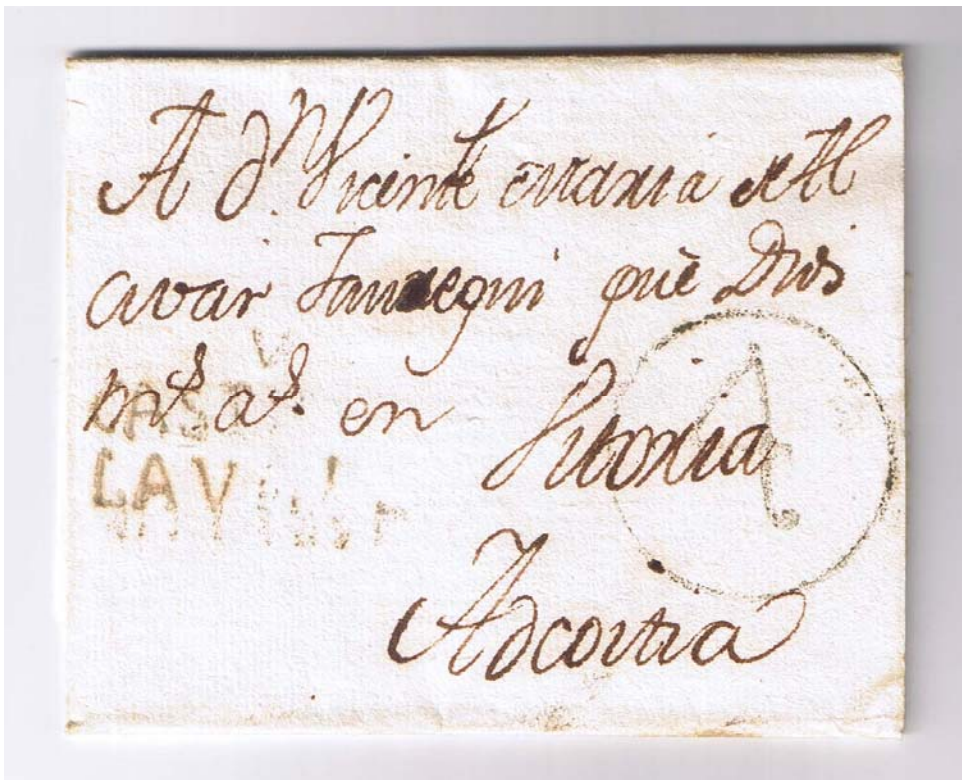 A d.n Vicente Maria de Al
civar Jauregui què Dios
m.s a.s en Vitoria
Azcoitia